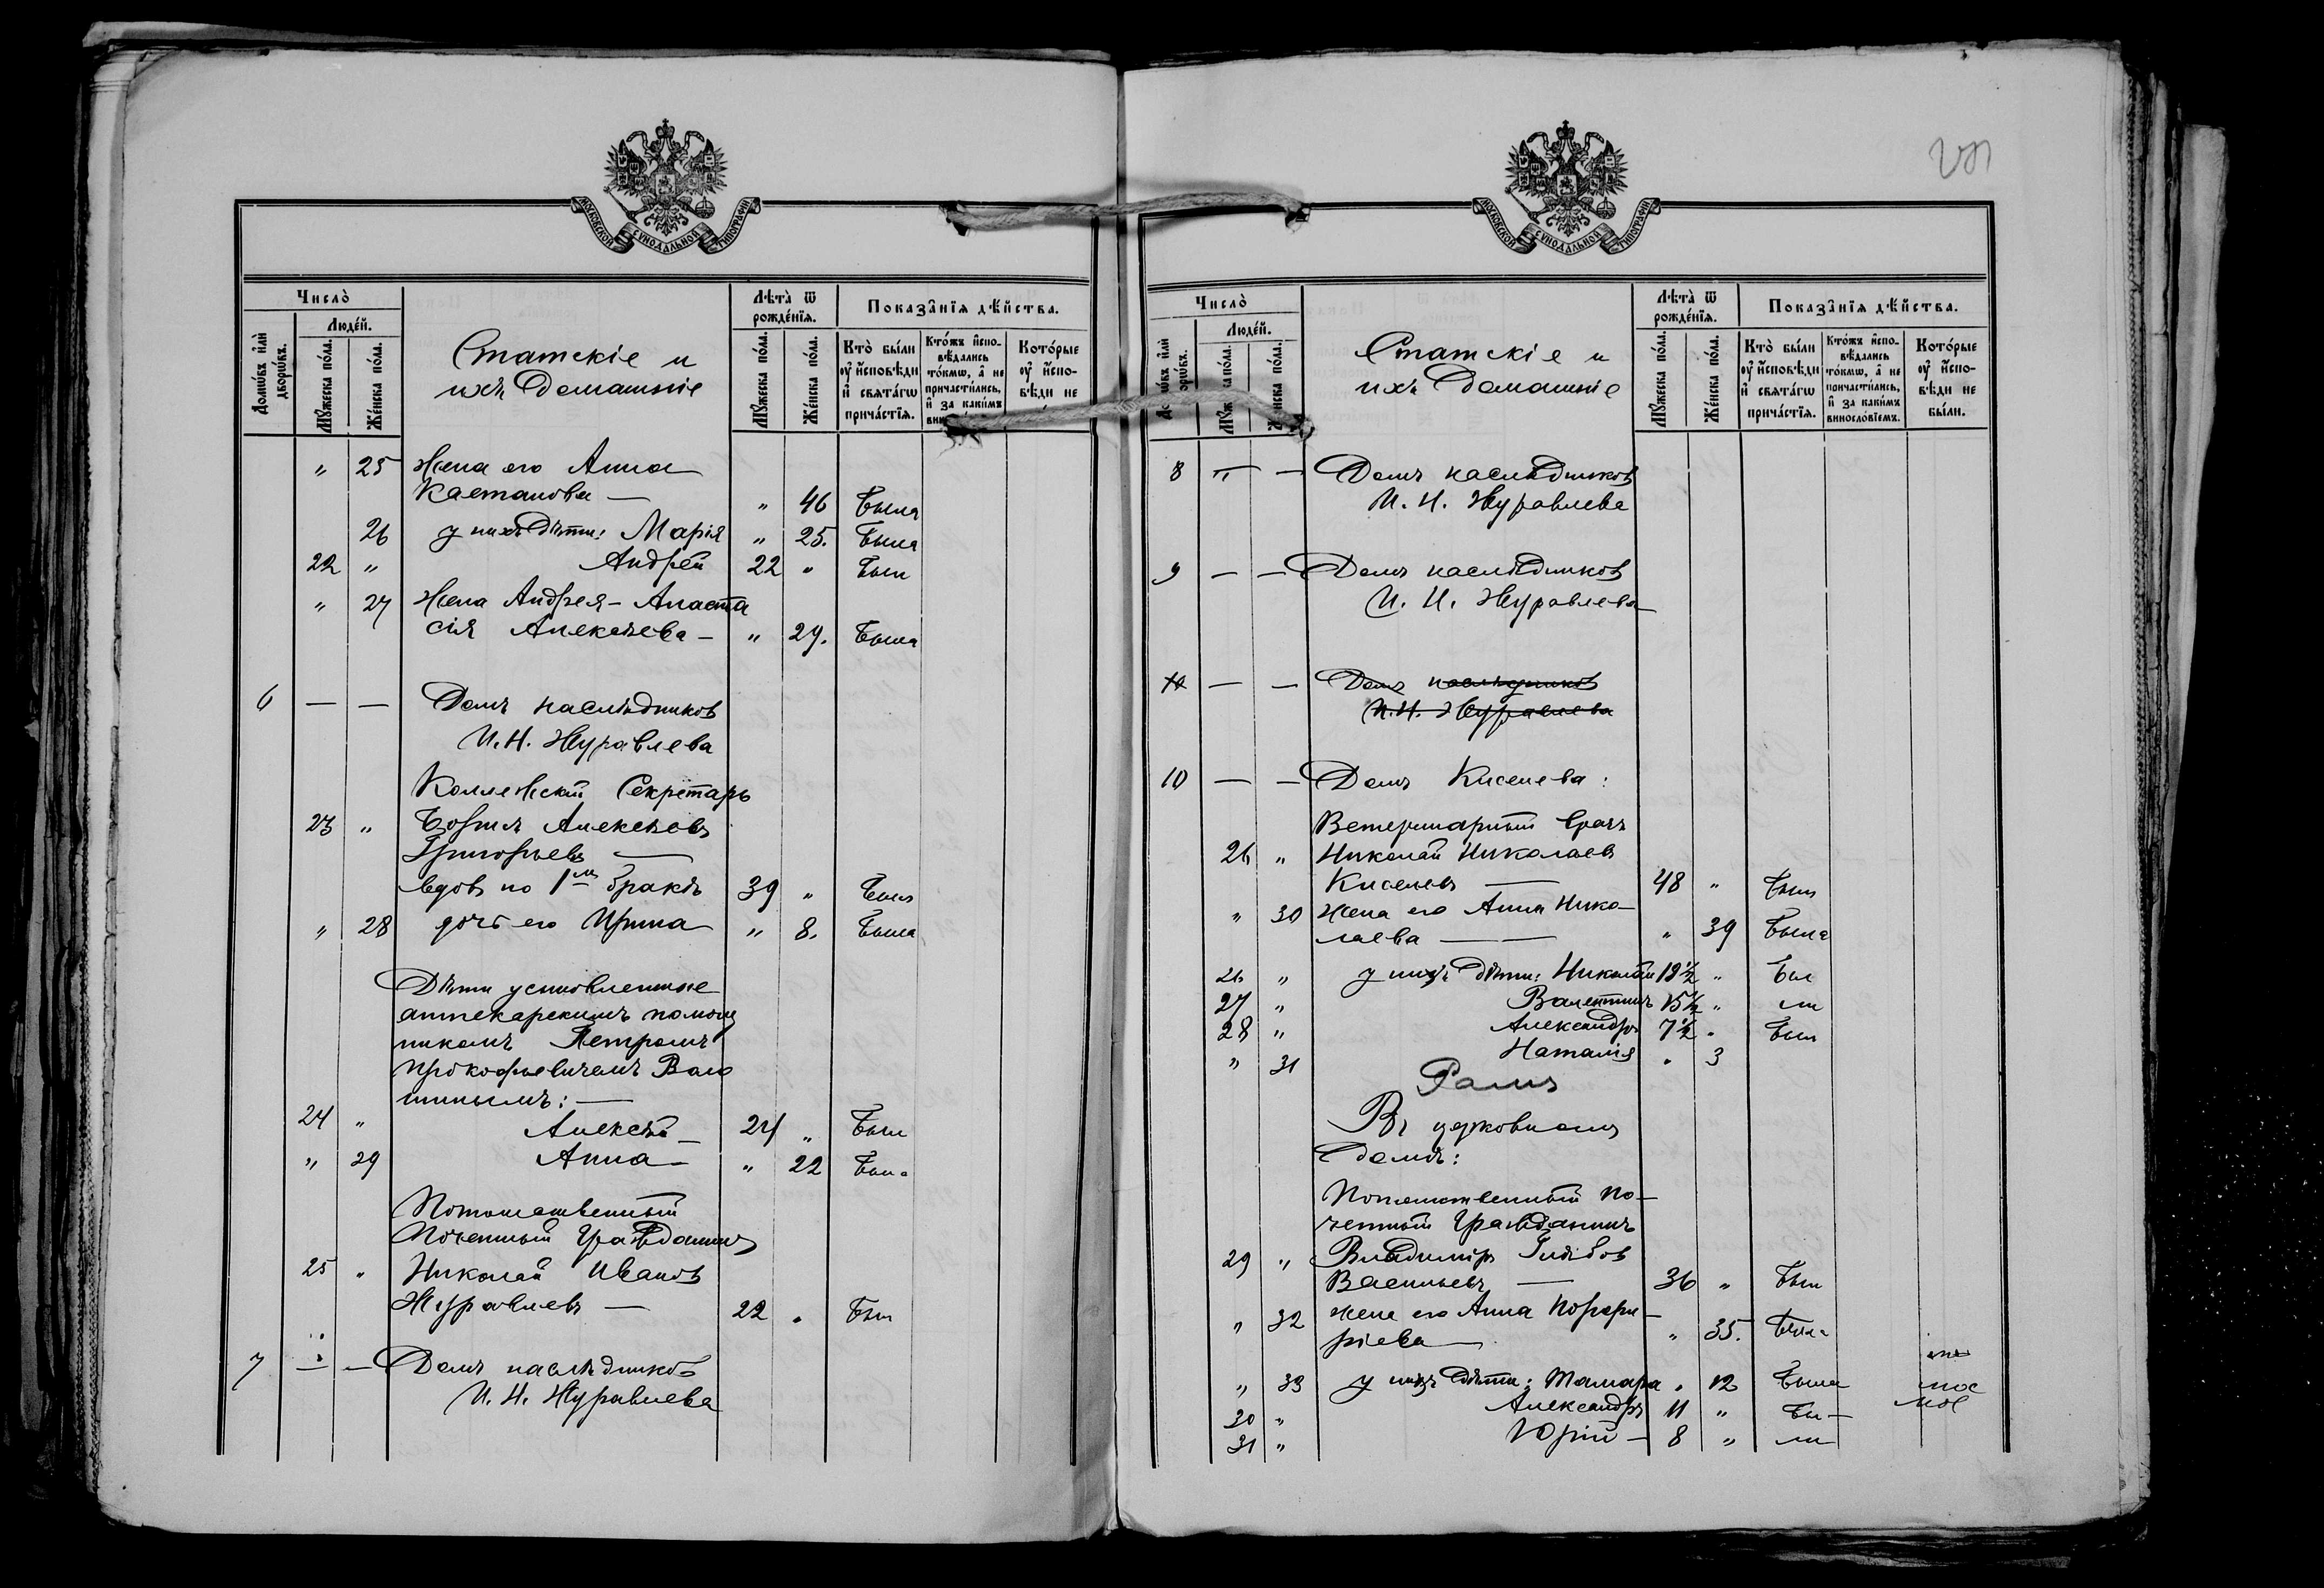 МОСКОВСКОЙ СѴНОДАЛЬНОЙ ТИПОГРАФІИ
Число̀
Домѡ́въ и҆лѝ дворѡ́въ.
Люде́й.
Мꙋ́жеска по́ла.
Же́нска по́ла.
Статскіе и
ихъ домашніе
Лѣта̀ ѿ рожде́нїѧ.
Мꙋ́жеска по́ла.
Же́нска по́ла.
Показа̑нїѧ дѣ́йства.
Кто̀ бы́ли оу҆ и҆сповѣ́ди и҆ свѧта́гѡ прича́стїѧ.
Кто́жъ и҆спо-вѣ́дались то́кмѡ, а҆ не причасти́лись, и҆ за каки́мъ
Кото́рые оу҆ и҆спо-вѣ́ди не
" 25 Жена его Анна
Каетанова — " 46 Была
26 у нихъ дѣти: Марія " 25. Была
22 " Андрей 22 " Был
" 27 Жена Андрея - Анаста
сія Алексѣева — " 29. Была
6 — — Домъ наслѣдников
И. Н. Журавлева
Коллежскій Секретарь
23 " Борисъ Алексѣевъ
Григорьевъ —
вдов по 1м бракѣ 39 " Был
" 28 дочь его Ирина " 8. Была
Дѣти усыновленные
аптекарскимъ помощ
никомъ Петромъ
Прокофьевичемъ
24 " Алексѣй — 24 " Был
" 29 Анна — " 22 Была
Потомственный
Почетный Гражданинъ
25 " Николай Иванов
Журавлевъ — 22 " Был
7 — — Домъ наслѣдников
И. Н. Журавлева
МОСКОВСКОЙ СѴНОДАЛЬНОЙ ТИПОГРАФІИ
Число̀
Люде́й.
Же́нска по́ла.
Статскіе и
ихъ домашніе
Лѣта̀ ѿ рожде́нїѧ.
Мꙋ́жеска по́ла.
Же́нска по́ла.
Показа̑нїѧ дѣ́йства.
Кто̀ бы́ли оу҆ и҆сповѣ́ди и҆ свѧта́гѡ прича́стїѧ.
Кто́жъ и҆спо-вѣ́дались то́кмѡ, а҆ не причасти́лись, и҆ за каки́мъ виносло́вїемъ.
Кото́рые оу҆ и҆спо-вѣ́ди не бы́ли.
8 — — Домъ наслѣдников
И. Н. Журавлева
9 — — Домъ наслѣдников
И. Н. Журавлева
10 — — Домъ наслѣдников
И. Н. Журавлева
10 — — Домъ Киселева:
Ветеринарный врачъ
26 " Николай Николаев
Киселевъ — 48 " Был
" 30 Жена его Анна Нико-
лаева — " 39 Была
26 " у нихъ дѣти: Николай 18½ " Был
27 " Валентинъ 15½ " ли
28 " Александръ 7½ " Был
" 31 Наталія " 3
Въ церковномъ
домѣ:
Потомственный по-
четный гражданинъ
29 " Владиміръ Глѣбов
Васильевъ — 36 " Был
" 32 жена его Анна Порфи-
ріева — " 35. Была
" 33 у нихъ дѣти: Тамара " 12 Была
30 " Александръ 11 " Бы-
31 " Юрій — 8 " ли